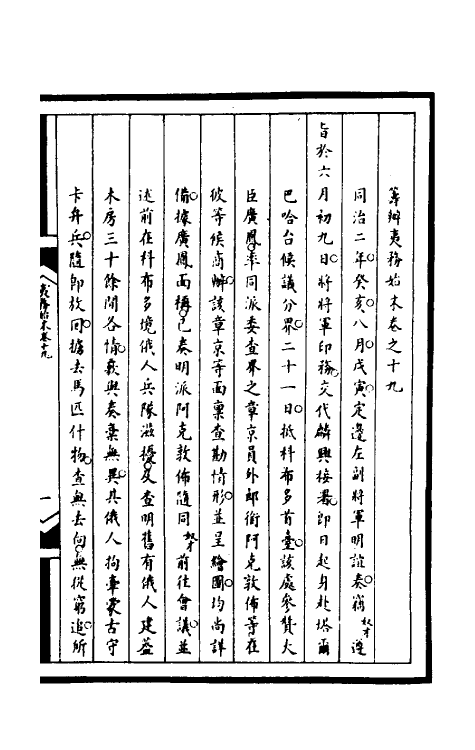 籌辦夷務始末卷之十九
同治二年癸亥八月戊寅定邊左副將軍明誼奏竊奴才遵
旨於六月初九日將將軍印務交代麟興接署卽日起身赴塔爾
巴哈台候議分界二十一日抵科布多首臺該處參贊大
臣廣鳳率同派委查界之章京員外郎銜阿克敦佈等在
彼等候商辦該章京等面稟查勘情形並呈繪圖均尚詳
備據廣鳳面稱已奏明派阿克敦佈隨同奴才前往會議並
述前在科布多境俄人兵隊滋擾及查明舊有俄人建蓋
木房三十餘間各情覈與奏稾無異其俄人拘牽蒙古守
卡弁兵隨卽放回擄去馬匹什物查無去向無從窮追所
夷務始末卷十九
一